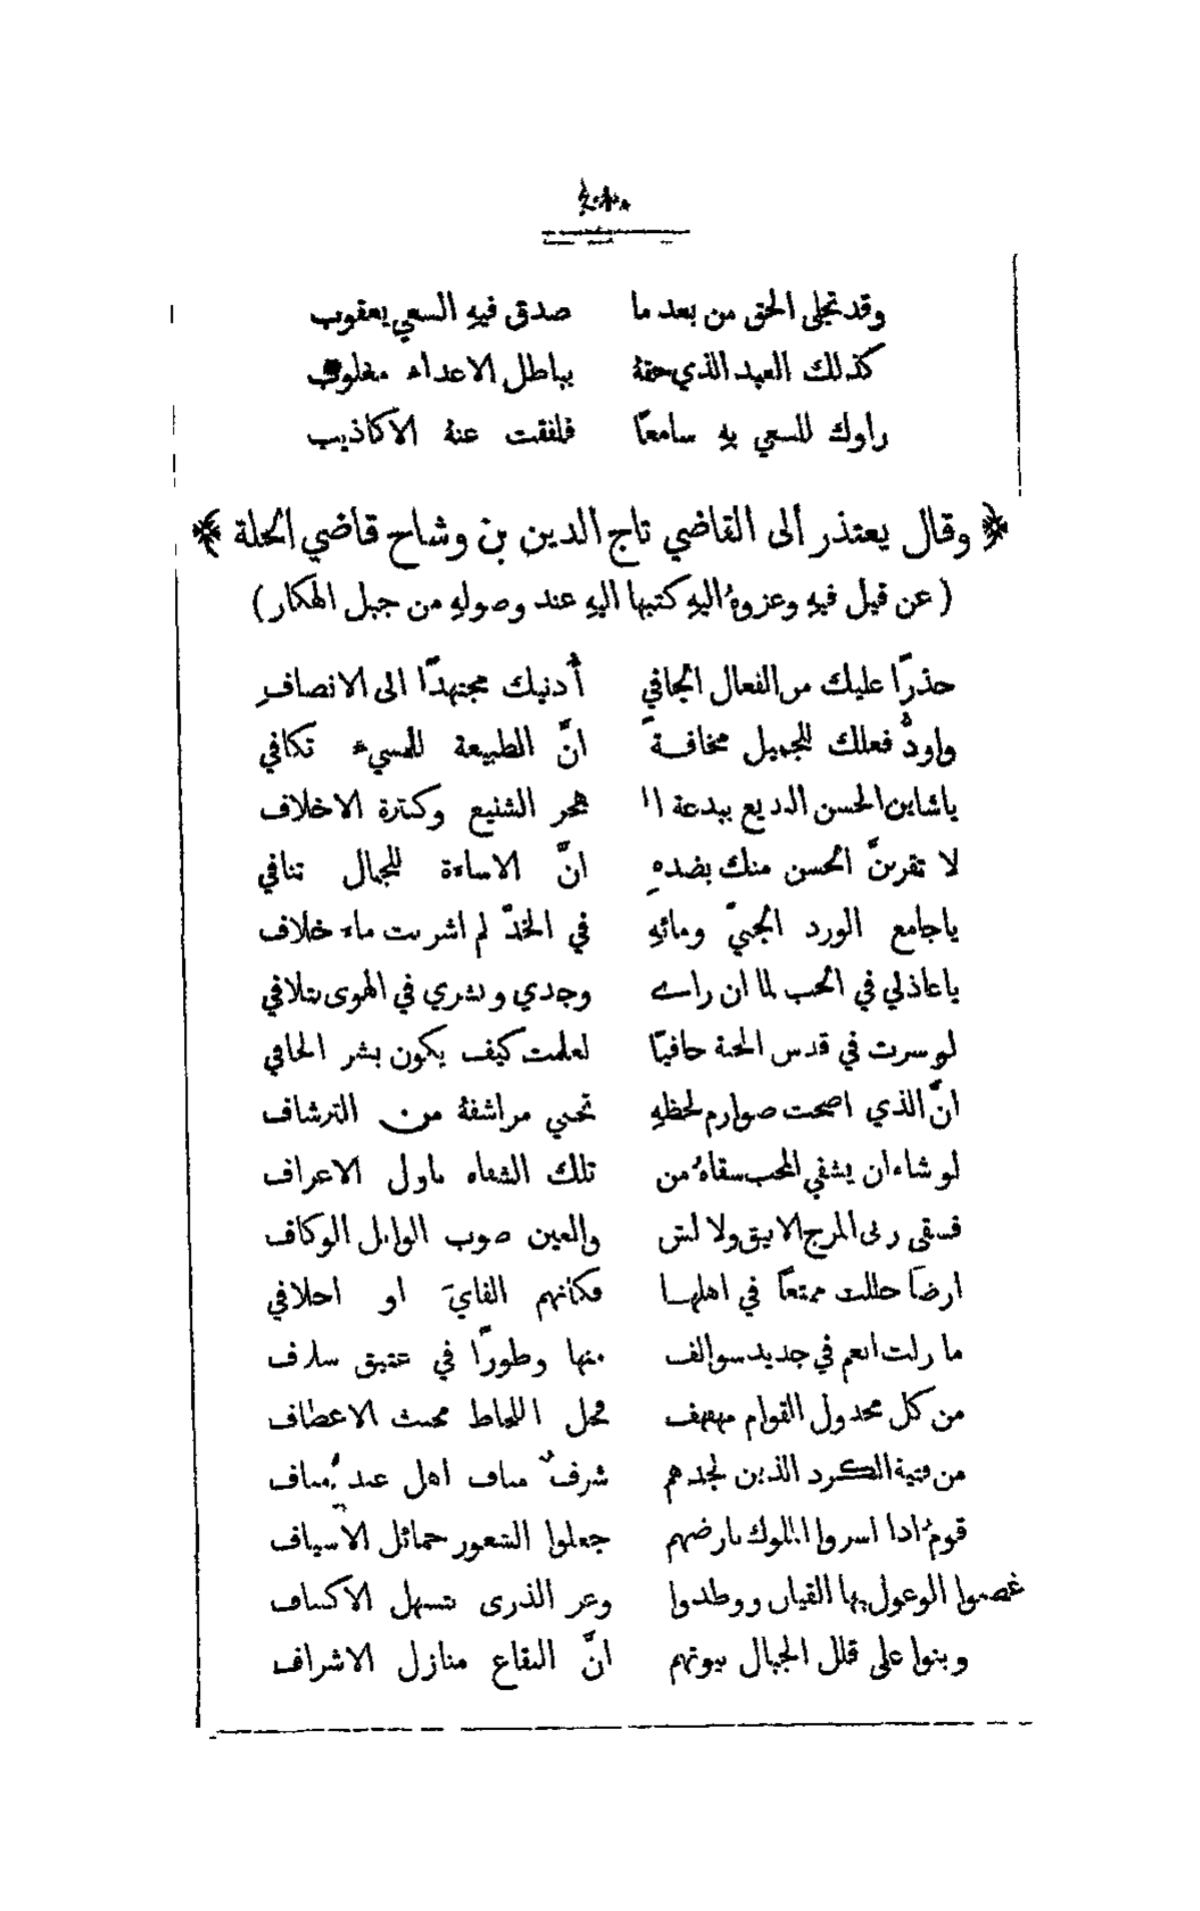 وقد تجلى الحق من بعد ما صدق فيهِ السعي يعقوب
كذلك العبد الذي حقهُ بباطل الاعداء مغلوب
راوك للسعي بهِ سامعًا فلفقت عنهُ الاكاذيب
﴿ وقال يعتذر ألى القاضي تاج الدين بن وشاح قاضي الحلة ﴾
( عن قيل فيهِ وعزوهُ اليهِ كتبها اليهِ عند وصولهِ من جبل الهكار )
حذرًا عليك من الفعال الجافي أدنيك مجتهدًا الى الانصافِ
واودُّ فعلك للجميل مخافةً انَّ الطبيعة للمسيء تكافي
ياشاين الحسن البديع ببدعة ال هجر الشنيع وكثرة الاخلاف
لا تقرننَّ الحسن منك بضدهِ انَّ الاساءة للجمال تنافي
ياجامع الورد الجنيّ ومائهِ في الخدّ لم اشربت ماء خلاف
ياعاذلي في الحب لما ان راى وجدي ونشري في الهوى بتلافي
لو سرت في قدس المحبة حافيًا لعلمت كيف يكون بشر الحافي
انَّ الذي اضحت صوارم لحظهِ تحمي مراشفهُ من الترشاف
لو شاء ان يشفي المحب سقاهُ من تلك الشفاه باول الاعراف
فسقى ربى المرج الانيق ولا لتش والعين صوب الوابل الوكاف
ارضًا حللت ممتعًا في اهلها فكانهم الفايَ او احلافي
ما زلت انعم في جديد سوالف منها وطورًا في عتيق سلاف
من كل مجدول القوام مهفهف فحل اللحاظ مخنث الاعطاف
من فتية الكرد الذين لجدهم شرفٌ مناف اهل عبد مناف
قومٌ اذا اسروا الملوك بارضهم جعلوا الشعور حمائل الاسياف
غصبوا الوعول بها القيان ووطدوا وعر الذرى بتسهل الاكناف
وبنوا على قلل الجبال بيوتهم انَّ البقاع منازل الاشراف